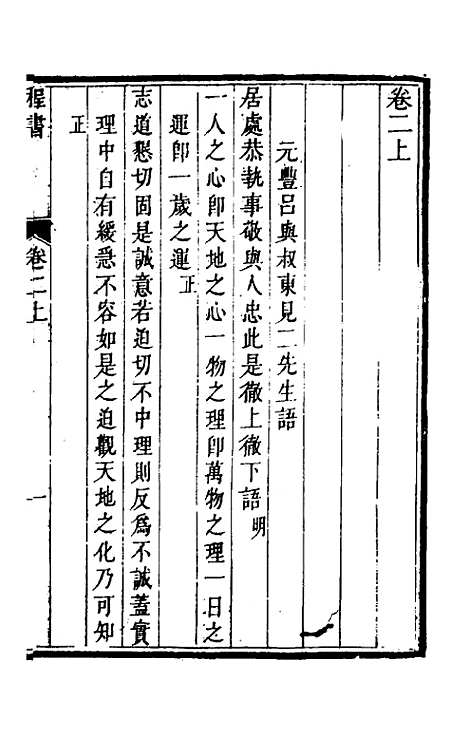 卷二上
元豐呂與叔東見二先生語
居處恭執事敬與人忠此是徹上徹下語 明
一人之心卽天地之心一物之理卽萬物之理一日之
運卽一歲之運 正
志道懇切固是誠意若迫切不中理則反爲不誠蓋實
理中自有緩急不容如是之迫觀天地之化乃可知
正
程書
卷二上
一